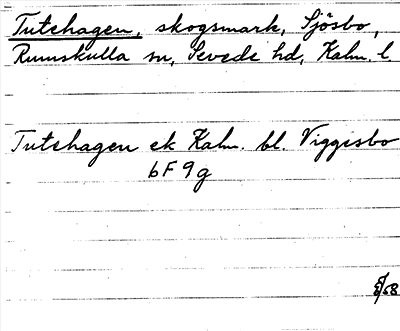 Tutehagen, skogsmark, Sjösbo,
Rumskulla sn, Sevede hd, Kalm. l
Tutehagen ek Kalm. bl. Viggesbo
6F 9g